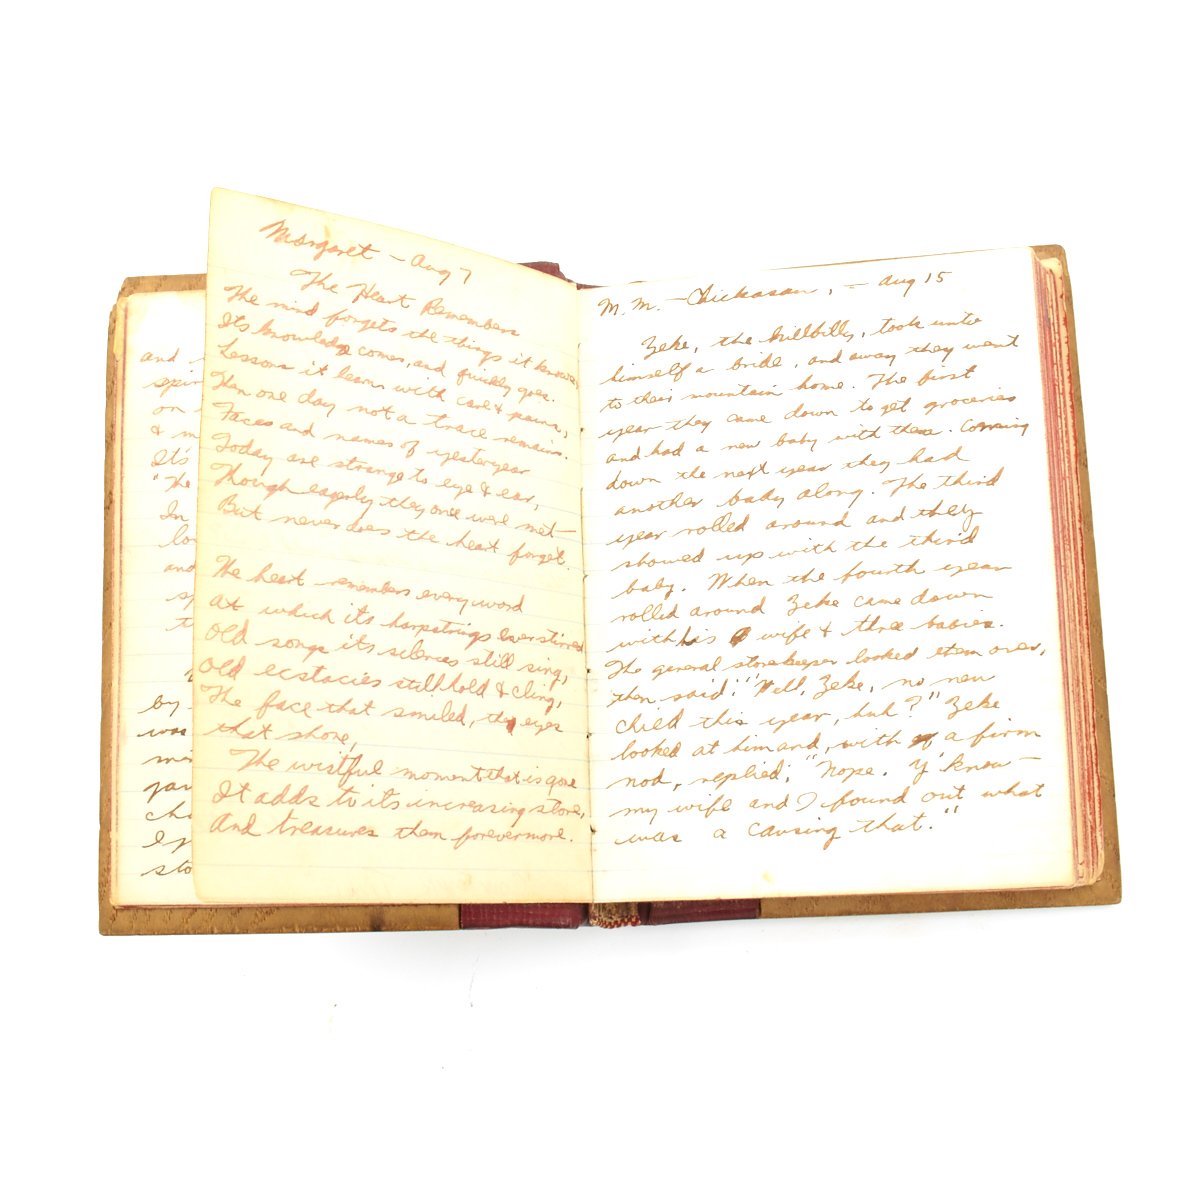 and
spir
on
& m
Its
"The
In
lo
and
sp
by
was
me
par
cha
sto
Margaret - Aug 7
The Heart Remembers
The mind forgets the things it knows,
Its knowledge comes, and quickly goes.
Lessons it learns with care & pains,
Then one day not a trace remains.
Faces and names of yesteryear
Today are strange to eye & ear,
Though eagerly they once were met—
But never does the heart forget.
The heart remembers every word
At which its harpstrings ever stirred
Old songs its silences still sing,
Old ecstacies still hold & cling,
The face that smiled, the eyes
that shone,
The wistful moment that is gone
It adds to its increasing store,
And treasures them forevermore.
M. M. - Dickason, - Aug 15
Zeke, the hillbilly, took unto
himself a bride, and away they went
to their mountain home. The first
year they came down to get groceries
and had a new baby with them. Coming
down the next year they had
another baby along. The third
year rolled around and they
showed up with the third
baby. When the fourth year
rolled around Zeke came down
with his wife & three babies.
The general storekeeper looked them over,
then said: "Well, Zeke, no new
child this year, huh?" Zeke
looked at him and, with a firm
nod, replied; "Nope. Y' know—
my wife and I found out what
was a causing that."